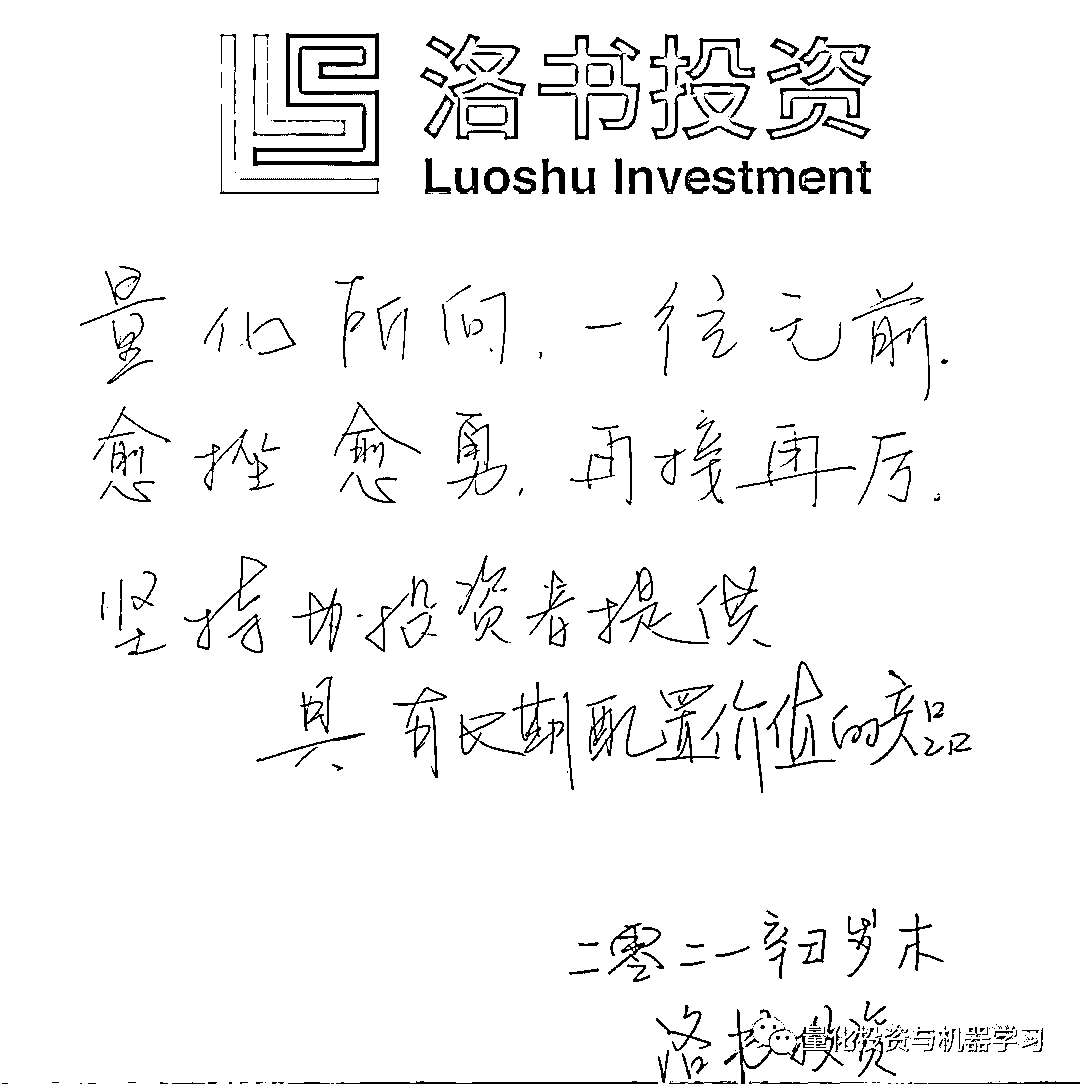 洛书投资
Luoshu Investment
量化所向,一往无前.
愈挫愈勇,再接再厉.
坚持为投资者提供
具有长期配置价值的产品
二零二一辛丑岁末
洛书投资
量化投资与机器学习